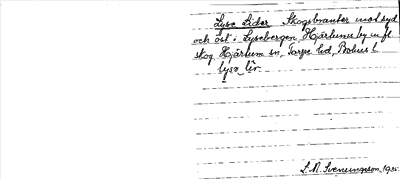 Lysa Lider Skogsbranter mot syd
och öst i Lyseberget Hjärtums by m fl
skog Hjärtum sn, Torpe hd, Bohus l
lysa līr
S. A. Svenungsson, 1925